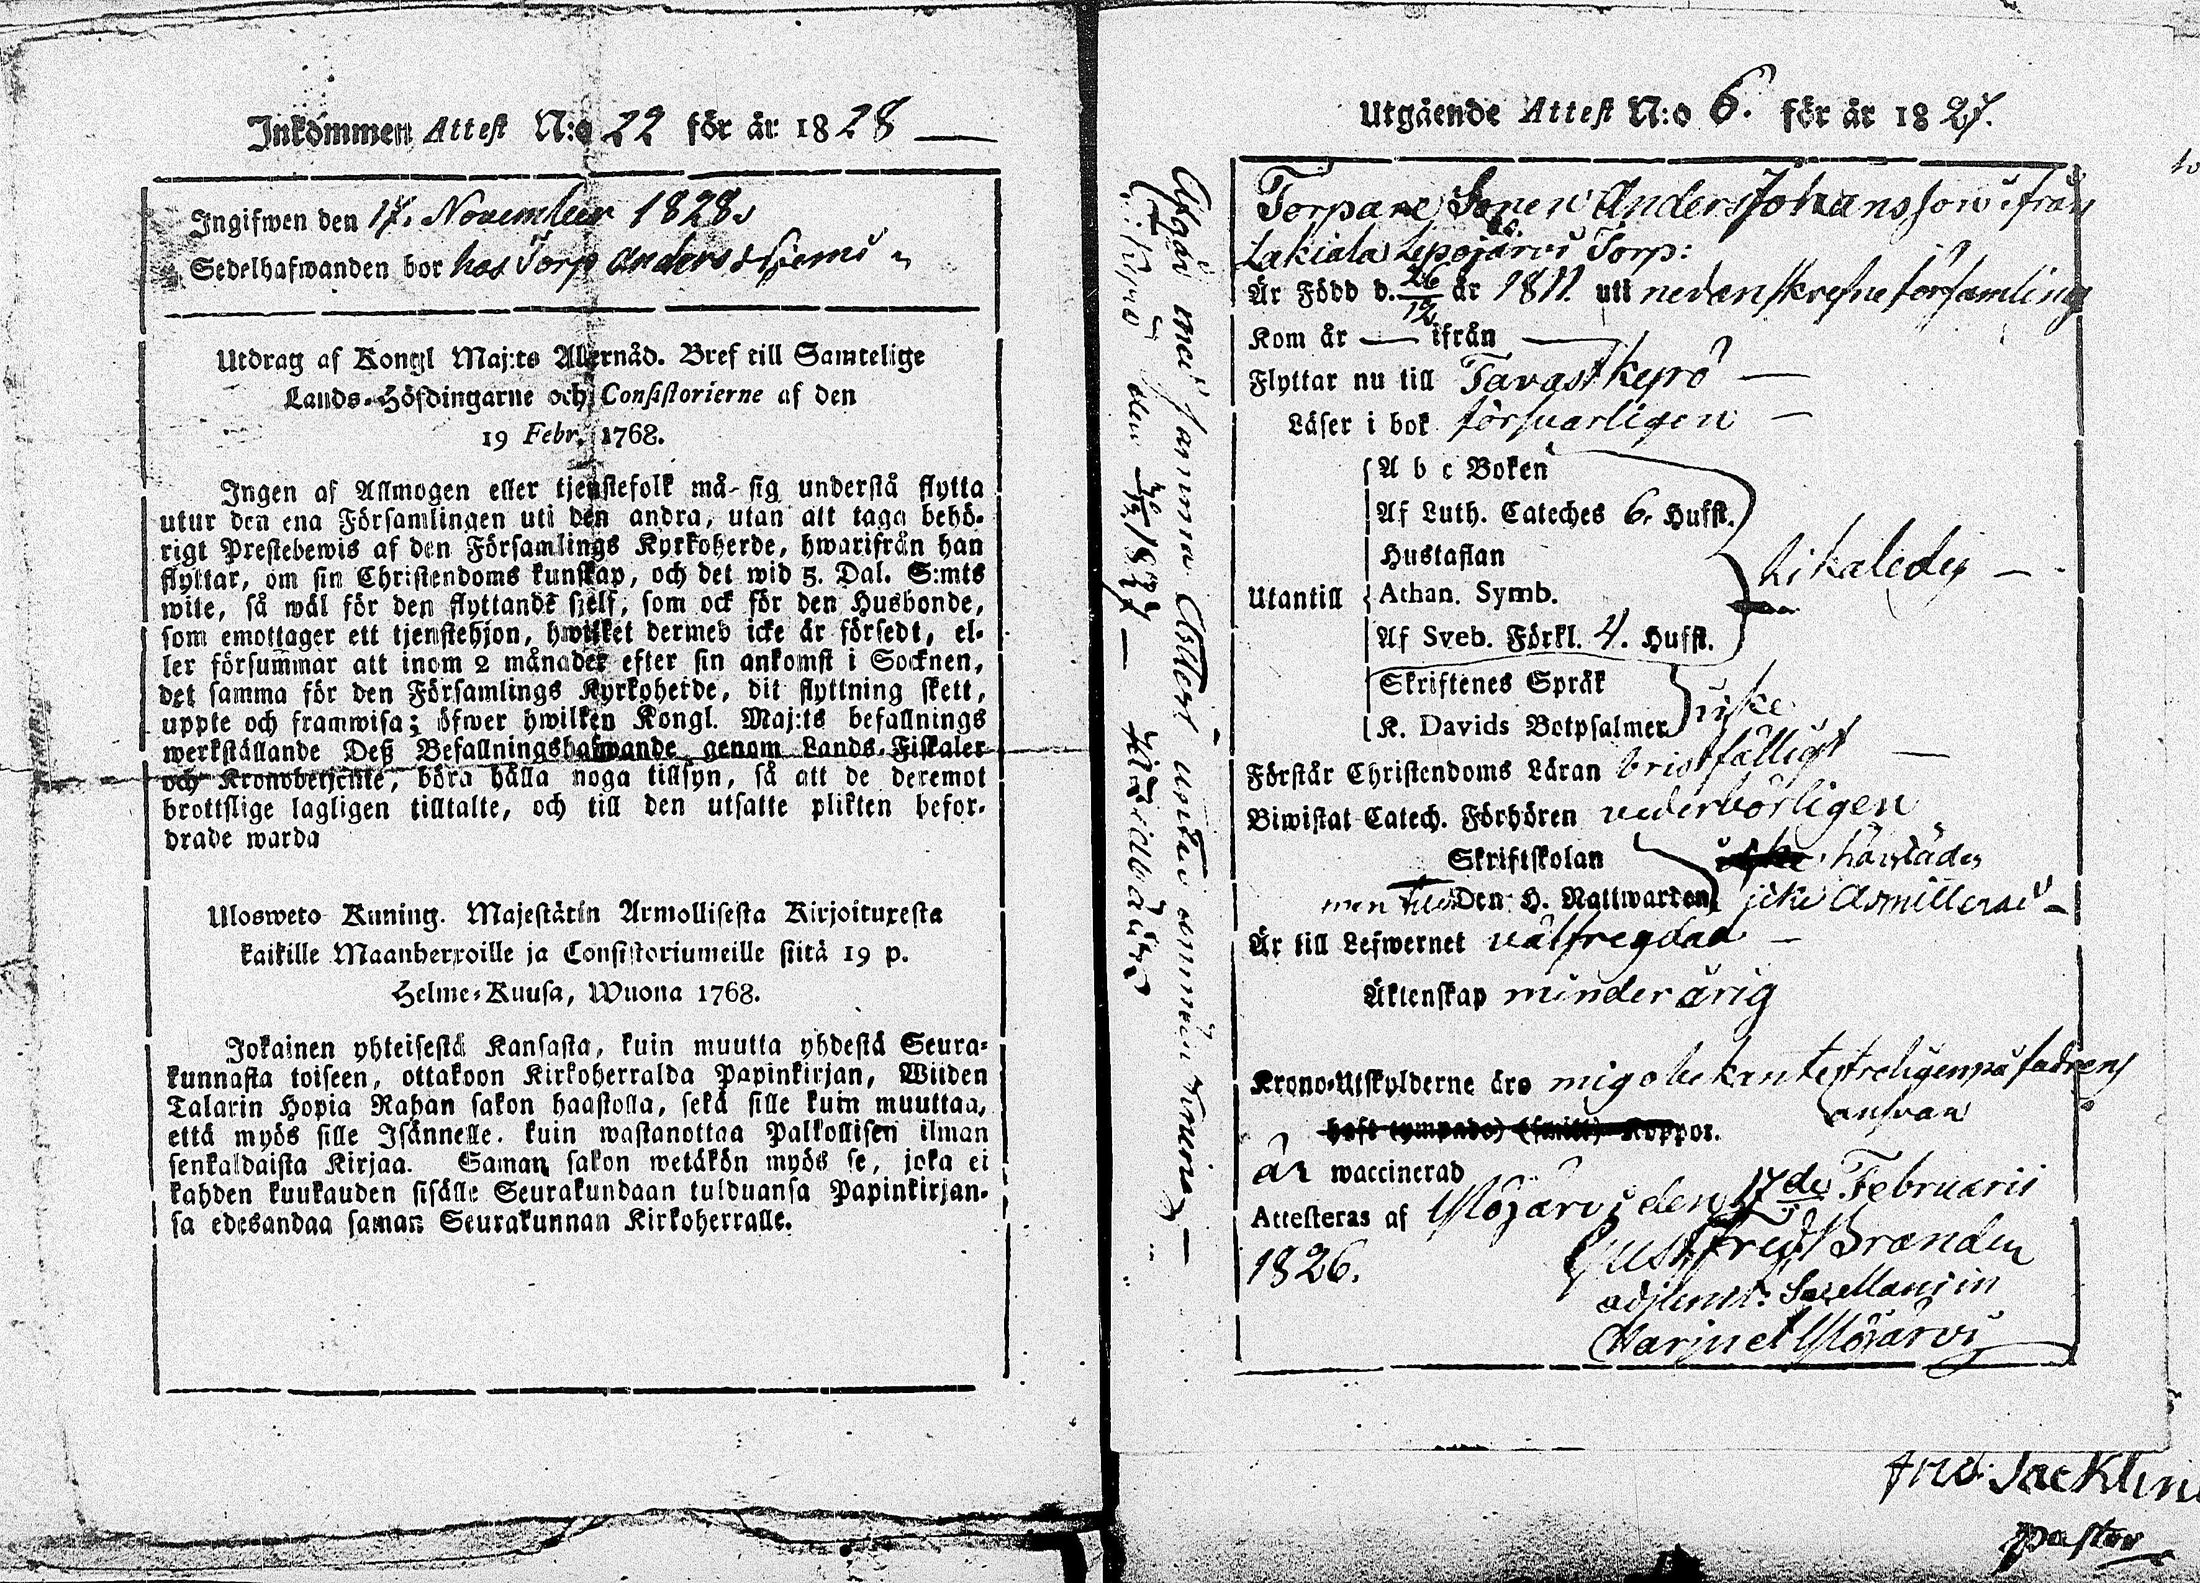 Inkommen Attest N:o 22 för år 1828
Ingifwen den 17. November 1828.
Sedelhafwanden bor hos Torp Anders
Utdrag af Kongl Maj:ts Allernåd. Bref till Samtelige
Lands-Höfdingarne och Consistorierne af den
19 Febr. 1768.
Ingen af Allmogen eller tjenstefolk må sig understå flytta
utur den ena Församlingen uti den andra, utan att taga behö-
rigt Prestebewis af den Församlings Kyrkoherde, hwarifrån han
flyttar, om sin Christendoms kunskap, och det wid 5. Dal. S:mts
wite, så wäl för den flyttande sjelf, som ock för den Husbonde,
som emottager ett tjenstehjon, hwilket dermed icke är försedt, el-
ler försummar att inom 2 månader efter sin ankomst i Socknen,
det samma för den Församlings Kyrkoherde, dit flyttning skett,
uppte och framwisa; öfwer hwilken Kongl. Maj:ts befallnings
werkställande Deß Befallningshafwande genom Lands-Fiskaler
och Kronobetjente, böra hålla noga tillsyn, så att de deremot
brottslige lagligen tilltalte, och till den utsatte plikten befor-
drade warda
Ulosweto Kuning. Majestätin Armollisesta Kirjoituxesta
kaikille Maanherroille ja Consistoriumeille siitä 19 p.
Helme-Kuusa, Wuona 1768.
Jokainen yhteisestä Kansasta, kuin muutta yhdestä Seura-
kunnasta toiseen, ottakoon Kirkoherralda Papinkirjan, Wiiden
Talarin Hopia Rahan sakon haastolla, sekä sille kuin muuttaa,
että myös sille Isännelle, kuin wastanottaa Palkollisen ilman
senkaldaista Kirjaa. Saman sakon wetäkön myös se, joka ei
kahden kuukauden sisälle Seurakundaan tulduansa Papinkirjan-
sa edesandaa saman Seurakunnan Kirkoherralle.
Afgår med samma Attest
den 1827
Utgående Attest N:o 6. för år 1827.
Torpare Sonen Anders Johansson ifrån
Lakiala Lepojärvi Torp:
Är Född d. 26/12 år 1811. uti nedanskrefne församling
Kom år — ifrån —
Flyttar nu till Tavastkyrö —
Läser i bok försvarligen —
A b c Boken
Af Luth. Cateches 6. Hufst.
Hustaflan
Utantill Athan. Symb.
likaledes —
Af Sveb. Förkl. 4. Hufst.
Skriftenes Språk
K. Davids Botpsalmer
icke
Förstår Christendoms Läran bristfälligt —
Biwistat Catech. Förhören vederbörligen
Skriftskolan
men till Den H. Nattwarden icke Admitterad —
Är till Lefwernet välfregdad —
Äktenskap minderårig
Krono-Utskylderne äro mig obekante troligen på fadrens
ansvar
haft (ympade) (smitt) Koppor.
är waccinerad
Attesteras af Ylöjärvi den 17de Februarii
1826.
Gust. Fred. Branden
adjunct: Sacellani in
Harju et Ylöjärvi
Pastor